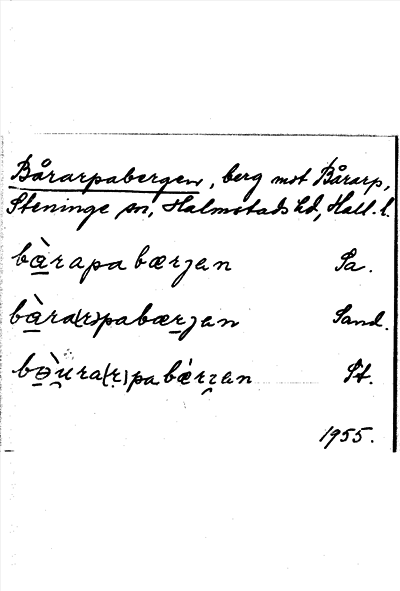 Bårarpabergen, berg mot Bårarp,
Steninge sn, Halmstads hd, Hall. l.
bàrapabærjen Sa.
bàra(r)pabærjen Sand.
bòura(r)pabǽrzen St.
1955.